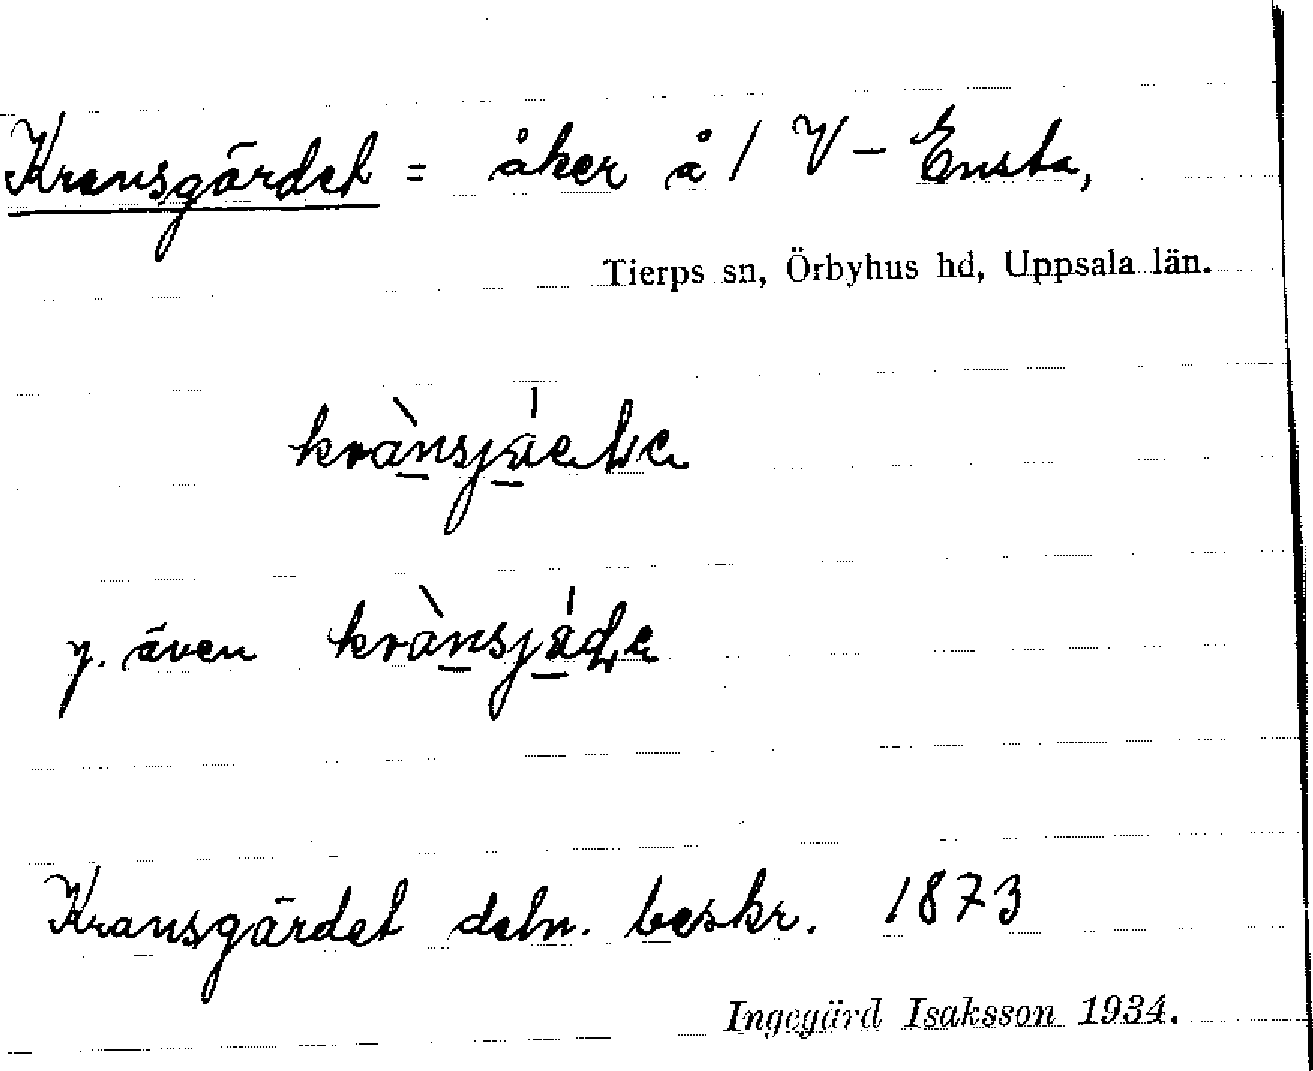 Kransgärdet = åker å 1 V - Ensta,
Tierps sn, Örbyhus hd, Uppsala län.
y. även
Kransgärdet deln. beskr. 1873
Ingegärd Isaksson 1934.